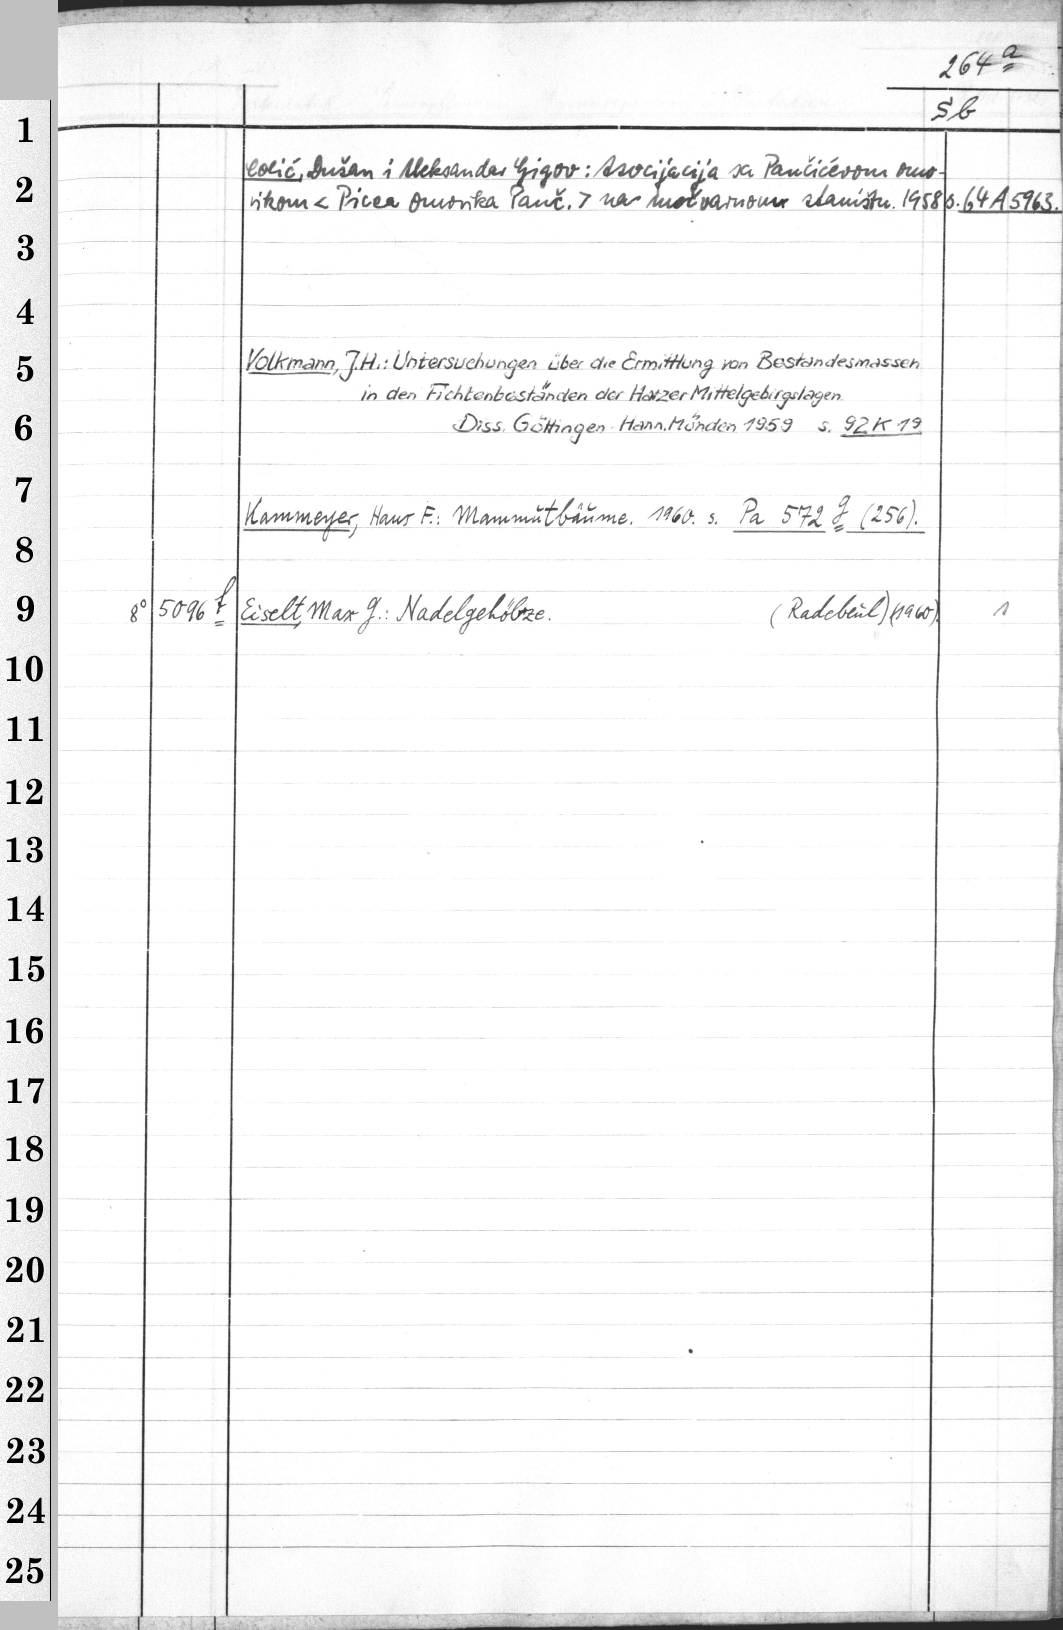 264 a
Sb
1
Colić, Dušan i Aleksandar Gigov: Asocijacija sa Pančićevom omo-
2
rikom < Picea omorika Panč. > na močvarnom staništu. 1958 s. 64 A 5963.
3
4
5
Volkmann, J.H.: Untersuchungen über die Ermittlung von Bestandesmassen
in den Fichtenbeständen der Harzer Mittelgebirgslagen
6
Diss. Göttingen - Hann. Münden 1959 s. 92 K 19
7
Kammeyer, Hans F.: Mammutbäume. 1960. s. Pa 572 g (256).
8
9
8° 5096 f Eiselt, Max G.: Nadelgehölze. (Radebeul) (1960). 1
10
11
12
13
14
15
16
17
18
19
20
21
22
23
24
25